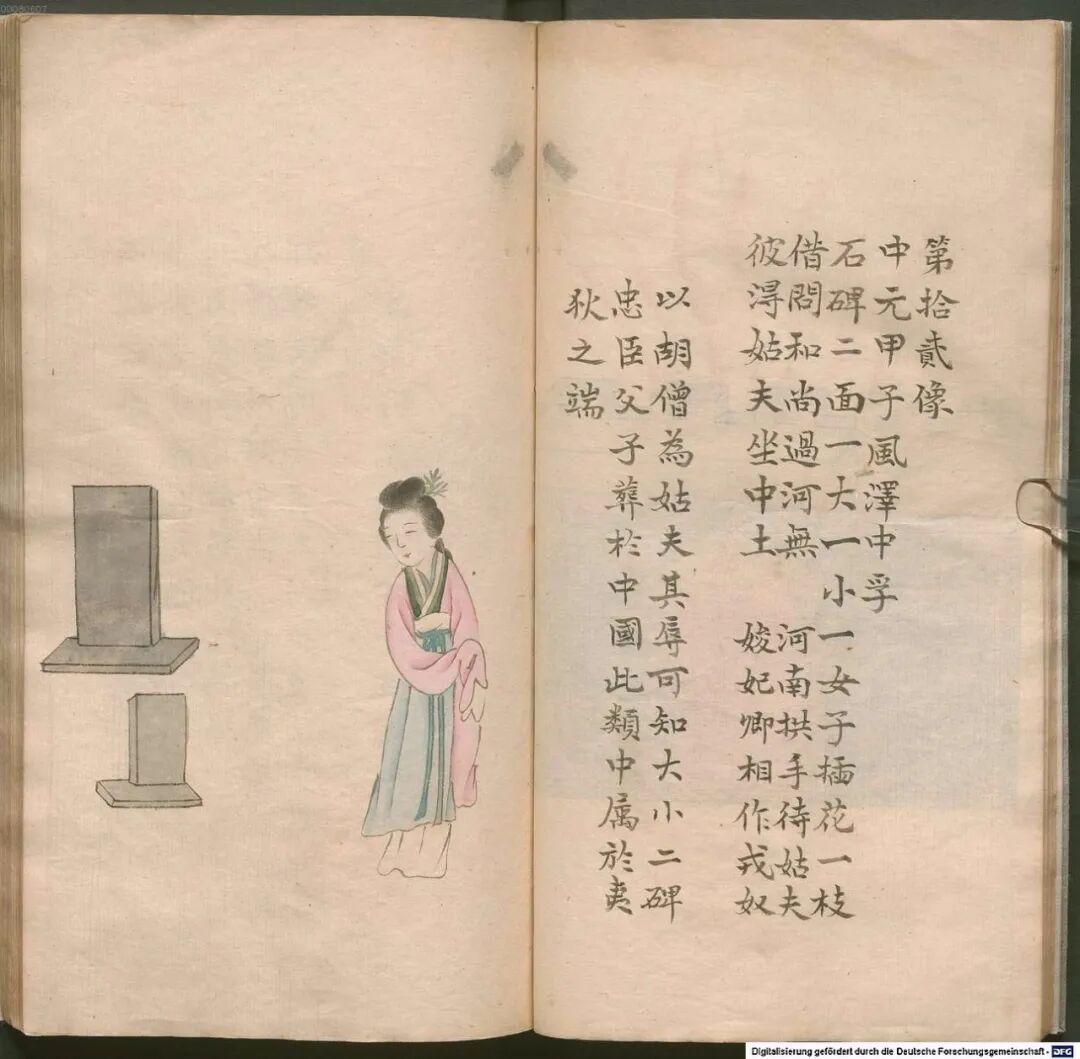 第拾貳像
中元甲子風澤中孚
石碑二面一大一小 一女子插花一枝
借問和尚過河無 河南拱手待姑夫
彼淂姑夫坐中土 嫂妃卿相作戎奴
以胡僧為姑夫其辱可知大小二碑
忠臣父子葬於中國此類中属於夷
狄之端
00080607
Digitalisierung gefördert durch die Deutsche Forschungsgemeinschaft - DFG